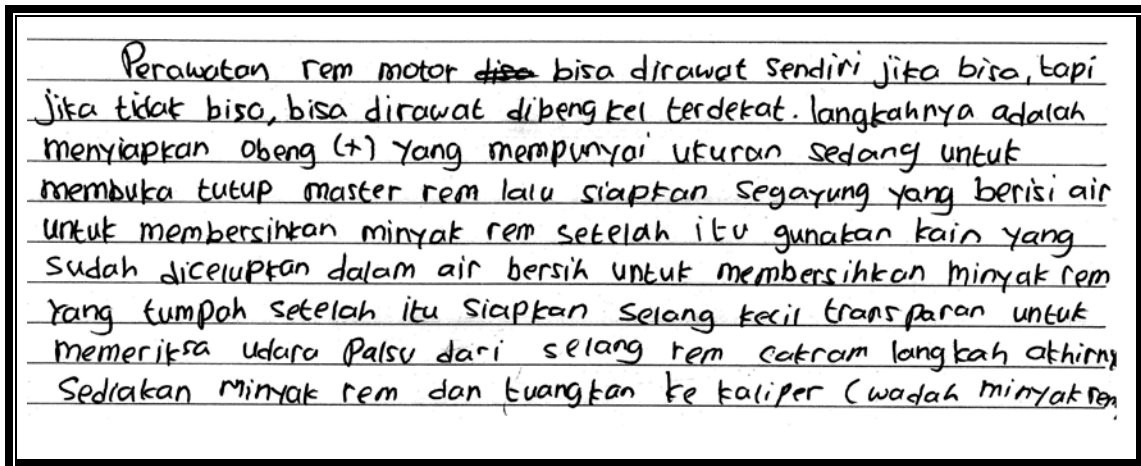 Perawatan rem motor disa bisa dirawat sendiri jika bisa, tapi
jika tidak bisa, bisa dirawat dibengkel terdekat. langkahnya adalah
menyiapkan obeng (+) yang mempunyai ukuran sedang untuk
membuka tutup master rem lalu siapkan segayung yang berisi air
untuk membersihkan minyak rem setelah itu gunakan kain yang
sudah dicelupkan dalam air bersih untuk membersihkan minyak rem
yang tumpah setelah itu siapkan selang kecil transparan untuk
memeriksa udara palsu dari selang rem cakram langkah akhirny
Sediakan minyak rem dan tuangkan ke kaliper (wadah minyak rem